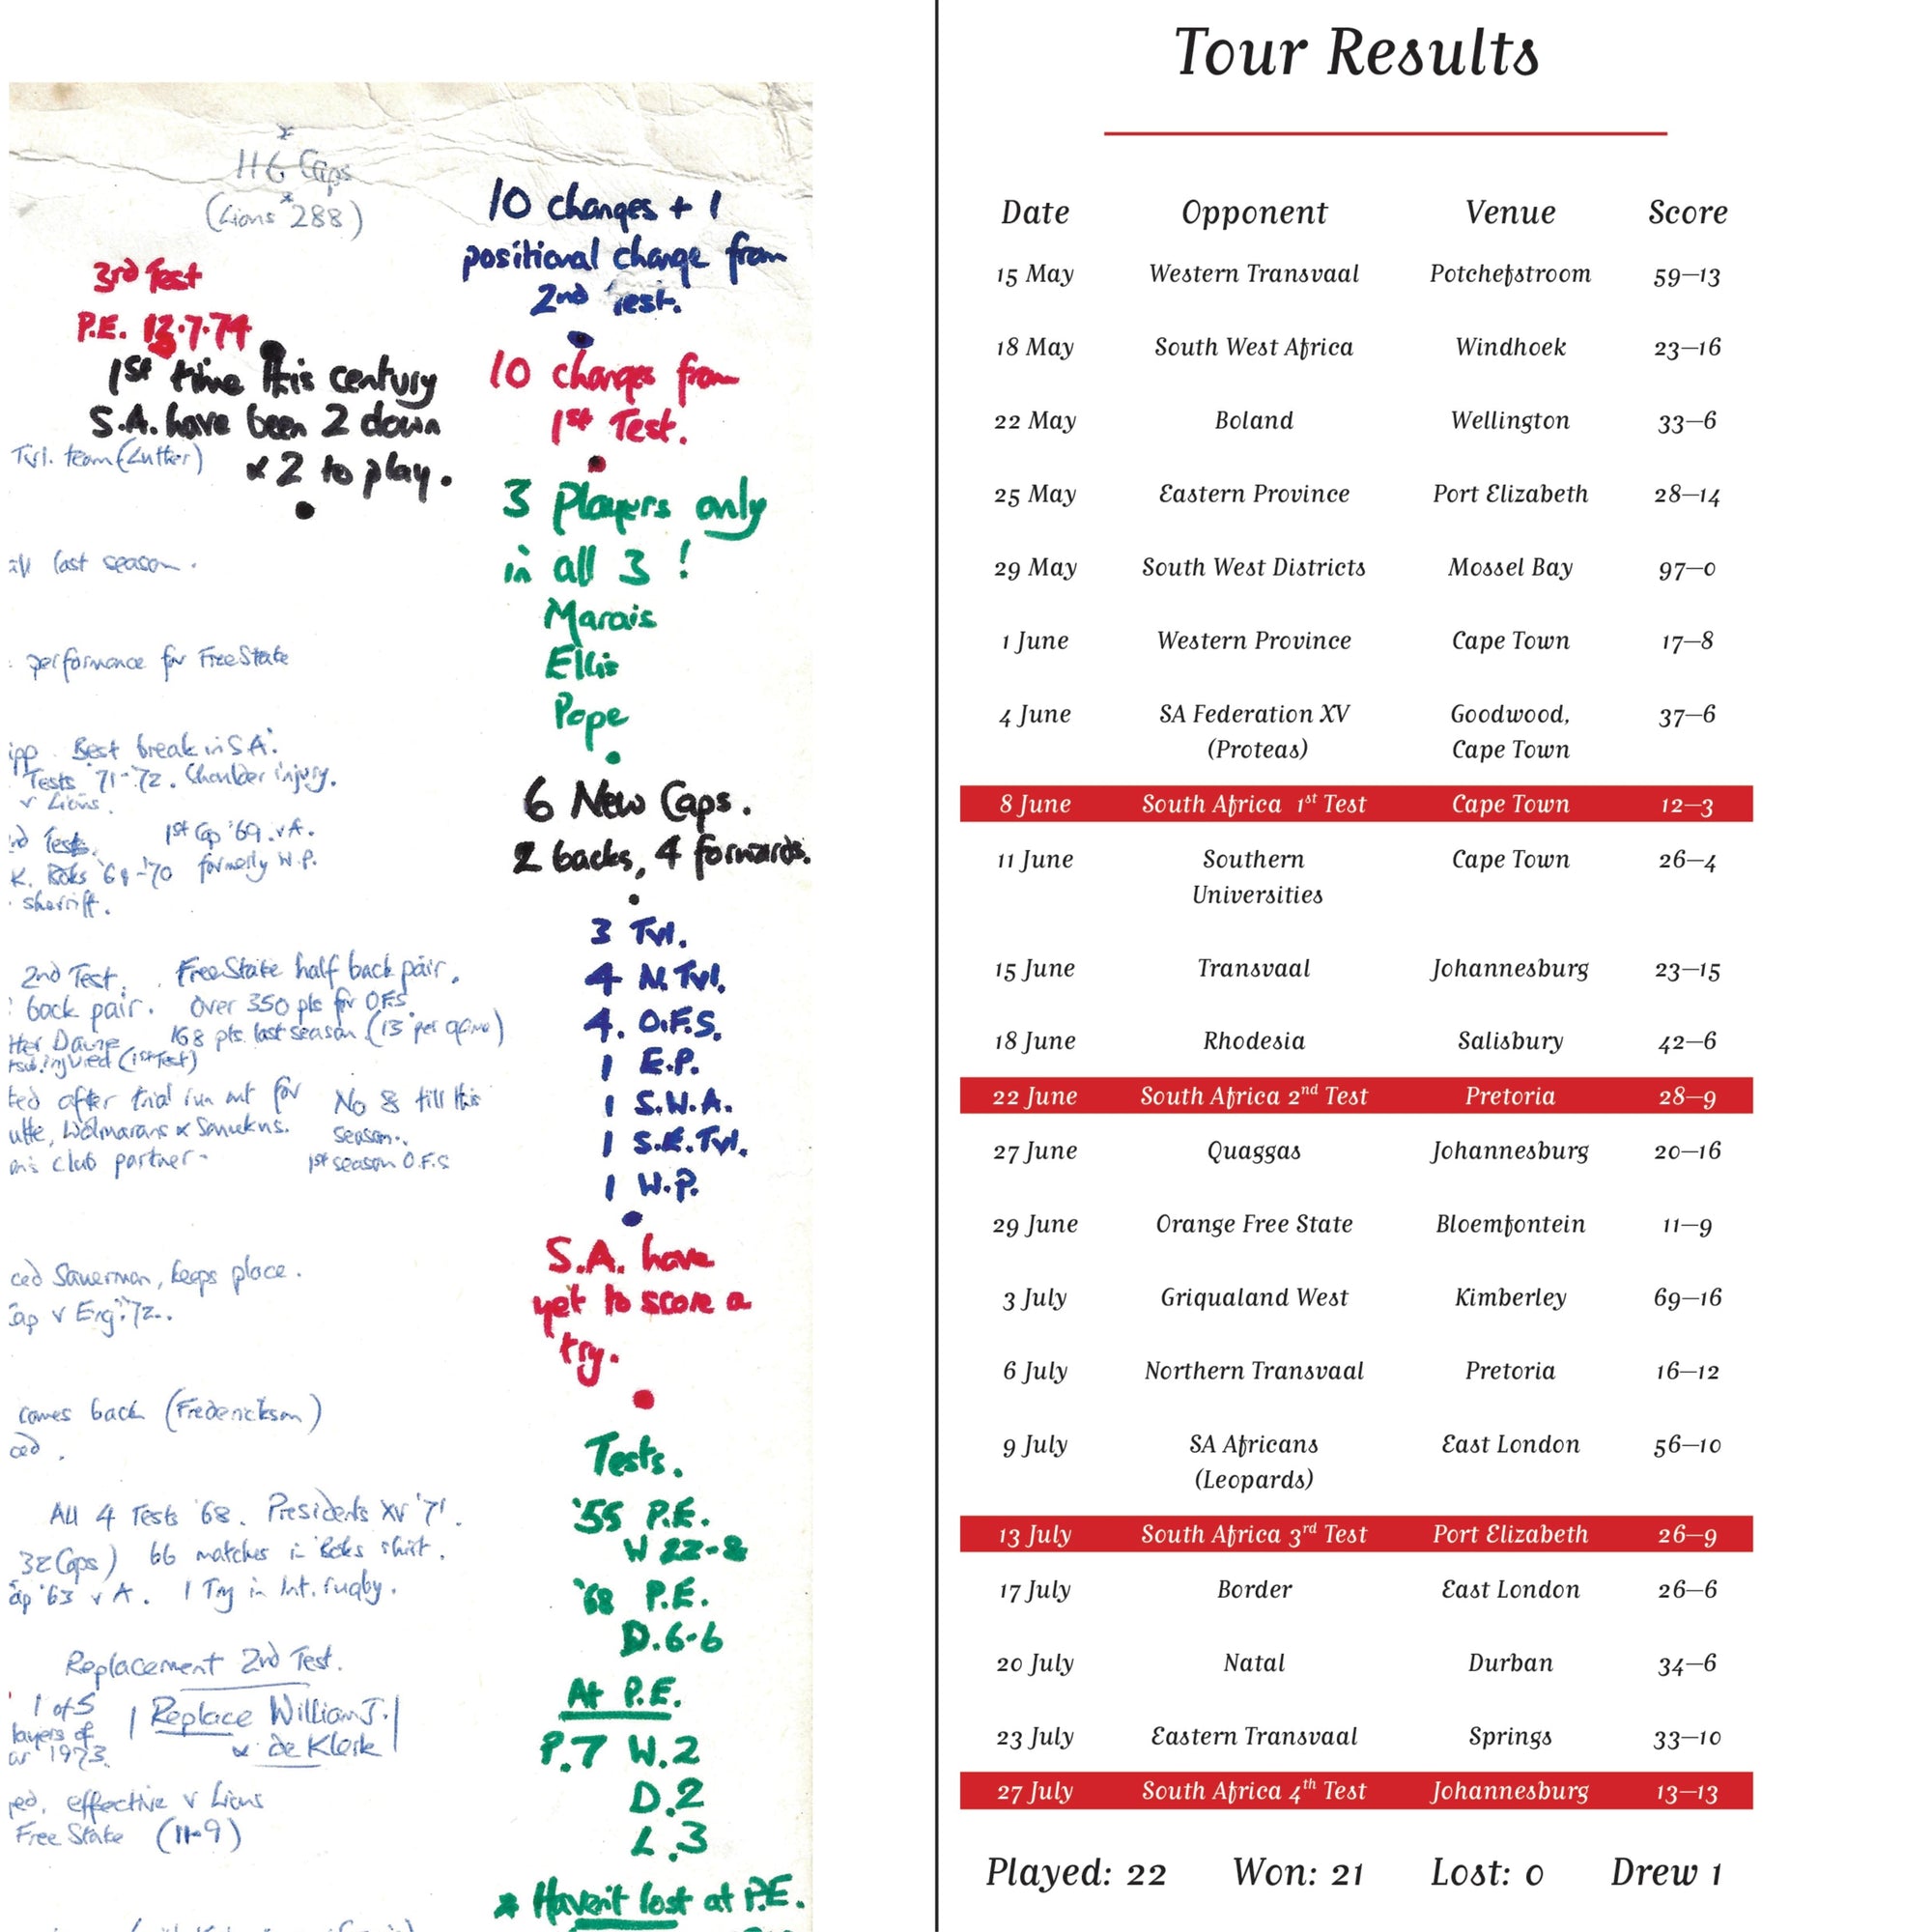 116 Caps
(Lions 288)
3rd Test
P.E. 13.7.74
1st time this century
S.A. have been 2 down
& 2 to play.
Tvl. team (Lutter)
last season.
performance for Free State
Best break in SA.
Tests '71-'72. Shoulder injury.
v Lions.
Tests. 1st Cap '69. v A.
K. Boks '69-'70 formerly W.P.
sherriff.
2nd Test. Free State half back pair.
back pair. Over 350 pts for O.F.S.
168 pts. last season (13 per game)
injured (1st Test)
after trial run out for No 8 till this
Wolmarans & season.
club partner. 1st season O.F.S
Sauerman, keeps place.
v Eng. '72.
comes back (Frederickson)
All 4 Tests '68. Presidents XV '71.
32 Caps) 66 matches in Boks shirt.
'63 v A. 1 Try in Int. rugby.
Replacement 2nd Test.
1 of 5 Replace William J.
& de Klerk
1973.
effective v Lions
Free State (11-9)
10 changes + 1
positional change from
2nd Test.
10 changes from
1st Test.
3 Players only
in all 3!
Marais
Ellis
Pope
6 New Caps.
2 backs, 4 forwards.
3 Tvl.
4 N. Tvl.
4. O.F.S.
1 E.P.
1 S.W.A.
1 S.E. Tvl.
1 W.P.
S.A. have
yet to score a
try.
Tests.
'55 P.E.
W 22-8
'68 P.E.
D. 6-6
At P.E.
P.7 W.2
D.2
L.3
* Haven't lost at P.E.
Tour Results
Date Opponent Venue Score
15 May Western Transvaal Potchefstroom 59–13
18 May South West Africa Windhoek 23–16
22 May Boland Wellington 33–6
25 May Eastern Province Port Elizabeth 28–14
29 May South West Districts Mossel Bay 97–0
1 June Western Province Cape Town 17–8
4 June SA Federation XV Goodwood, 37–6
(Proteas) Cape Town
8 June South Africa 1st Test Cape Town 12–3
11 June Southern Cape Town 26–4
Universities
15 June Transvaal Johannesburg 23–15
18 June Rhodesia Salisbury 42–6
22 June South Africa 2nd Test Pretoria 28–9
27 June Quaggas Johannesburg 20–16
29 June Orange Free State Bloemfontein 11–9
3 July Griqualand West Kimberley 69–16
6 July Northern Transvaal Pretoria 16–12
9 July SA Africans East London 56–10
(Leopards)
13 July South Africa 3rd Test Port Elizabeth 26–9
17 July Border East London 26–6
20 July Natal Durban 34–6
23 July Eastern Transvaal Springs 33–10
27 July South Africa 4th Test Johannesburg 13–13
Played: 22 Won: 21 Lost: 0 Drew 1